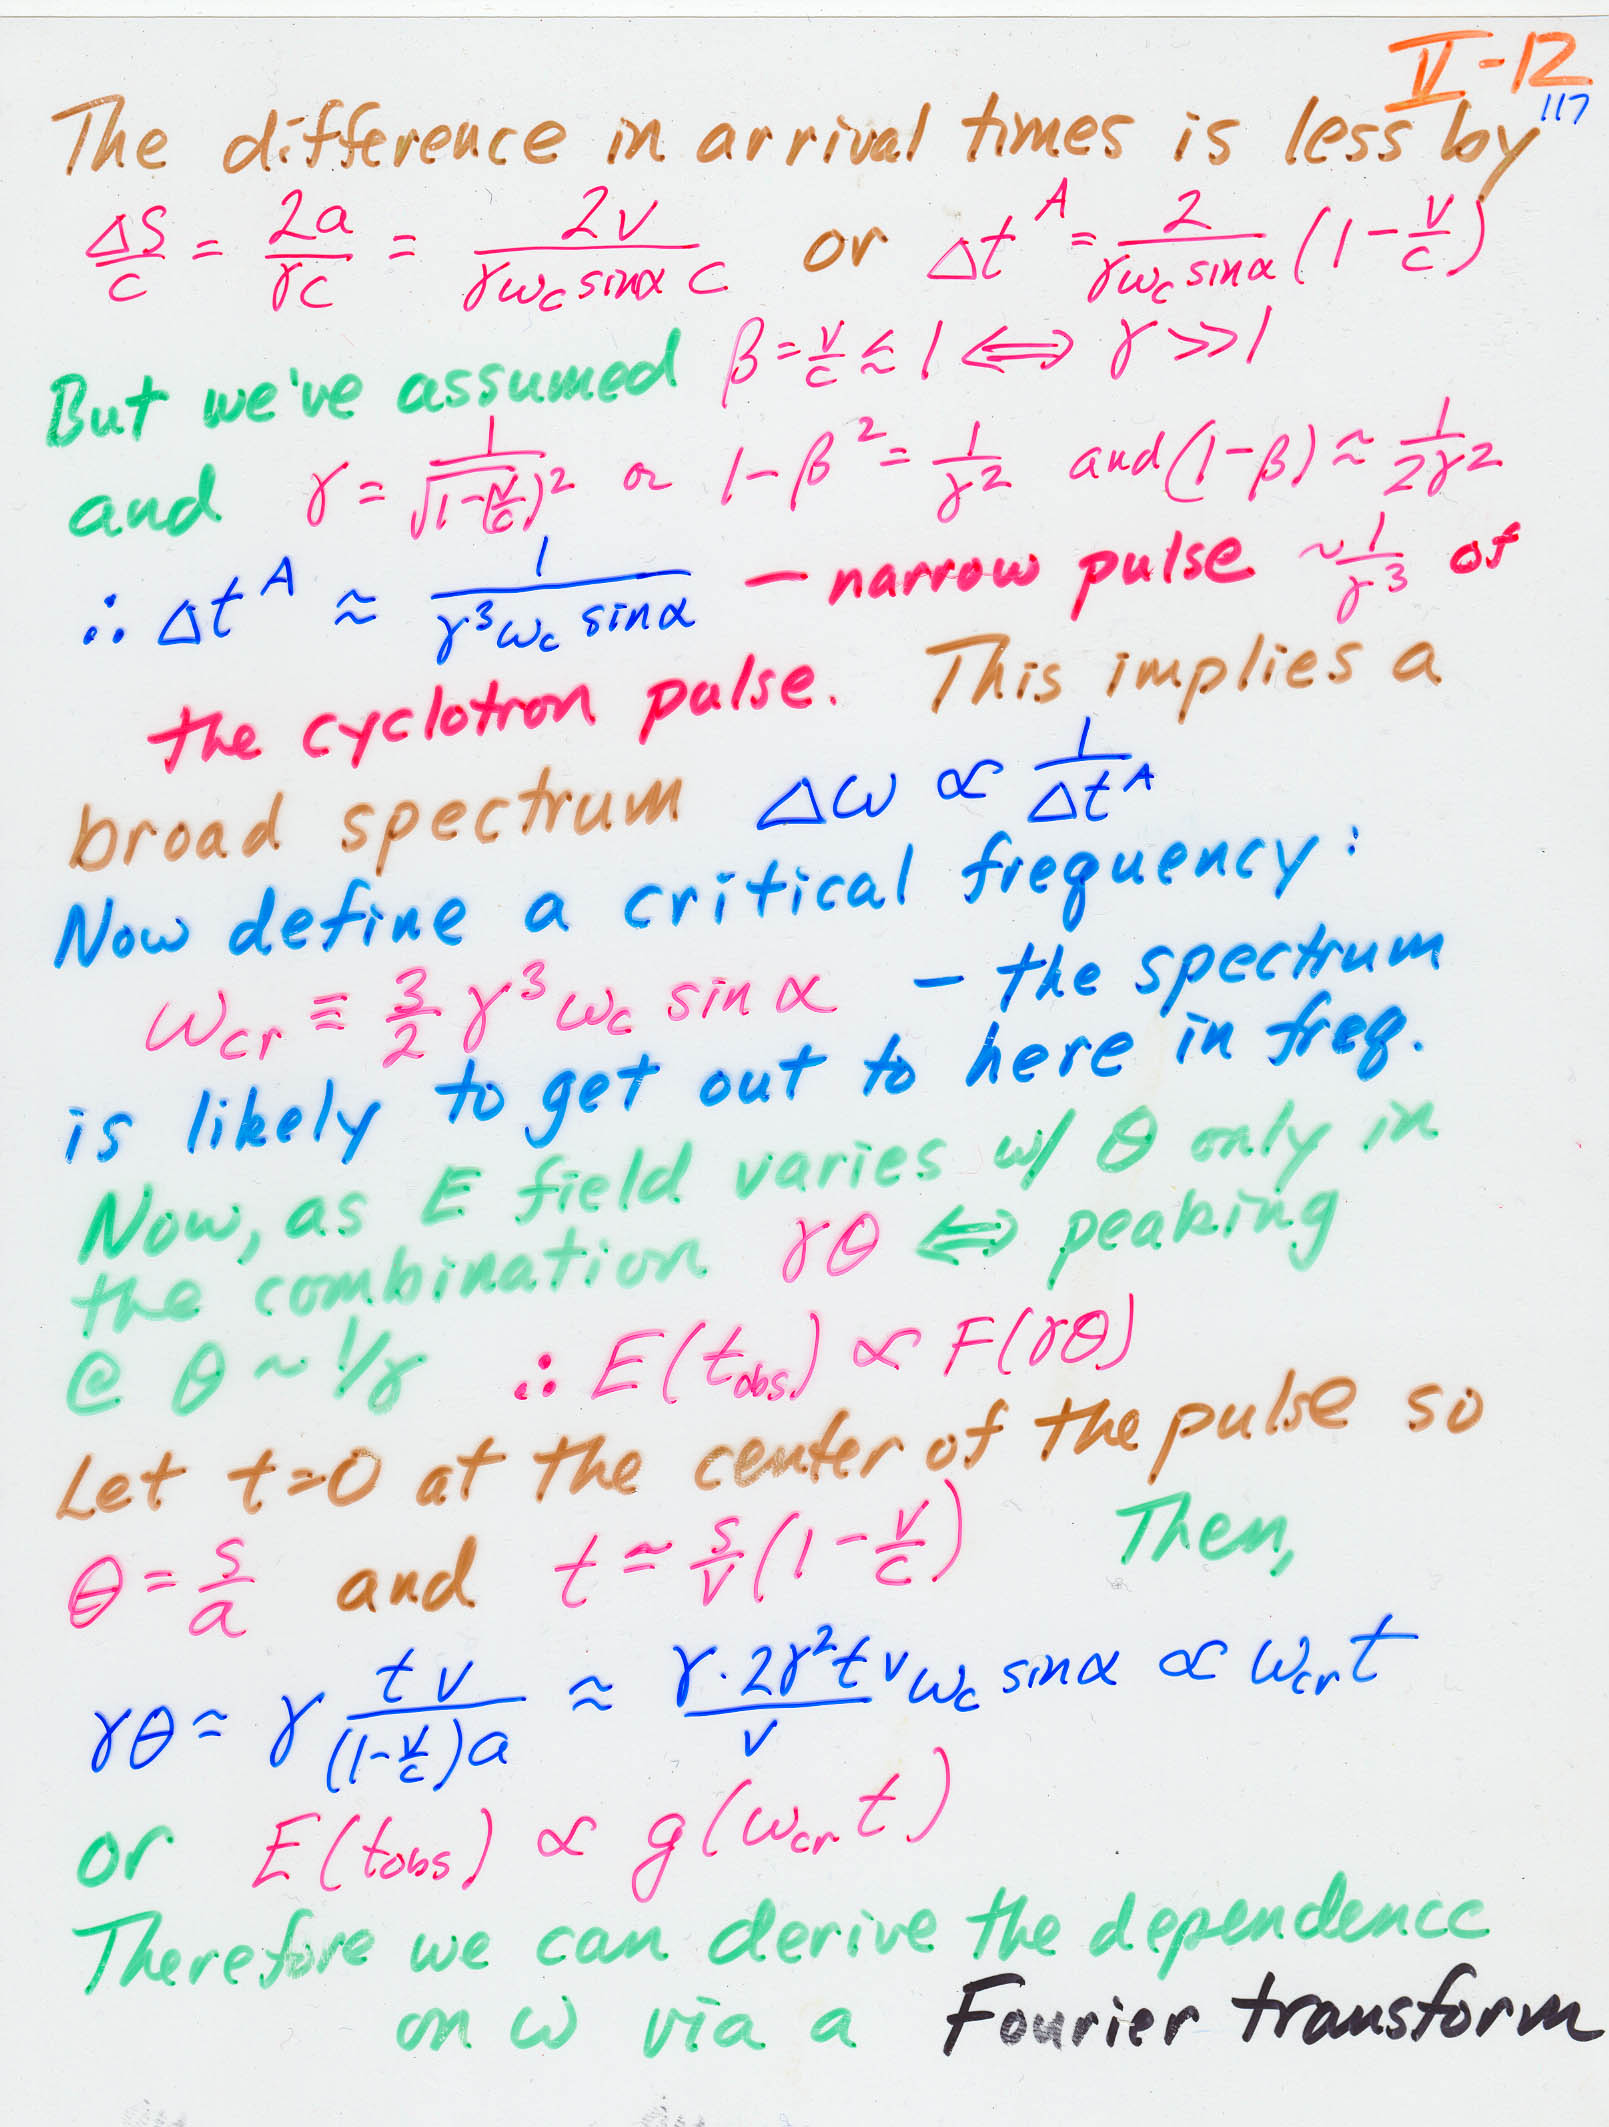 V-12
117
The difference in arrival times is less by
ΔS/c = 2a/γc = 2v/(γω_c sinα c) or Δt^A = 2/(γω_c sinα) (1 - v/c)
But we've assumed β = v/c ≲ 1 ⟺ γ >> 1
and γ = 1/√(1-(v/c)²) or 1-β² = 1/γ² and (1-β) ≈ 1/2γ²
∴ Δt^A ≈ 1/(γ³ω_c sinα) — narrow pulse ~1/γ³ of
the cyclotron pulse. This implies a
broad spectrum Δω ∝ 1/Δt^A
Now define a critical frequency:
ω_cr ≡ 3/2 γ³ ω_c sin α — the spectrum
is likely to get out to here in freq.
Now, as E field varies w/ θ only in
the combination γθ ⟺ peaking
@ θ ~ 1/γ ∴ E(t_obs) ∝ F(γθ)
Let t=0 at the center of the pulse so
θ = s/a and t ≃ s/v (1 - v/c) Then,
γθ ≃ γ tv/((1-v/c)a) ≈ (γ·2γ²t v ω_c sinα)/v ∝ ω_cr t
or E(t_obs) ∝ g(ω_cr t)
Therefore we can derive the dependence
on ω via a Fourier transform